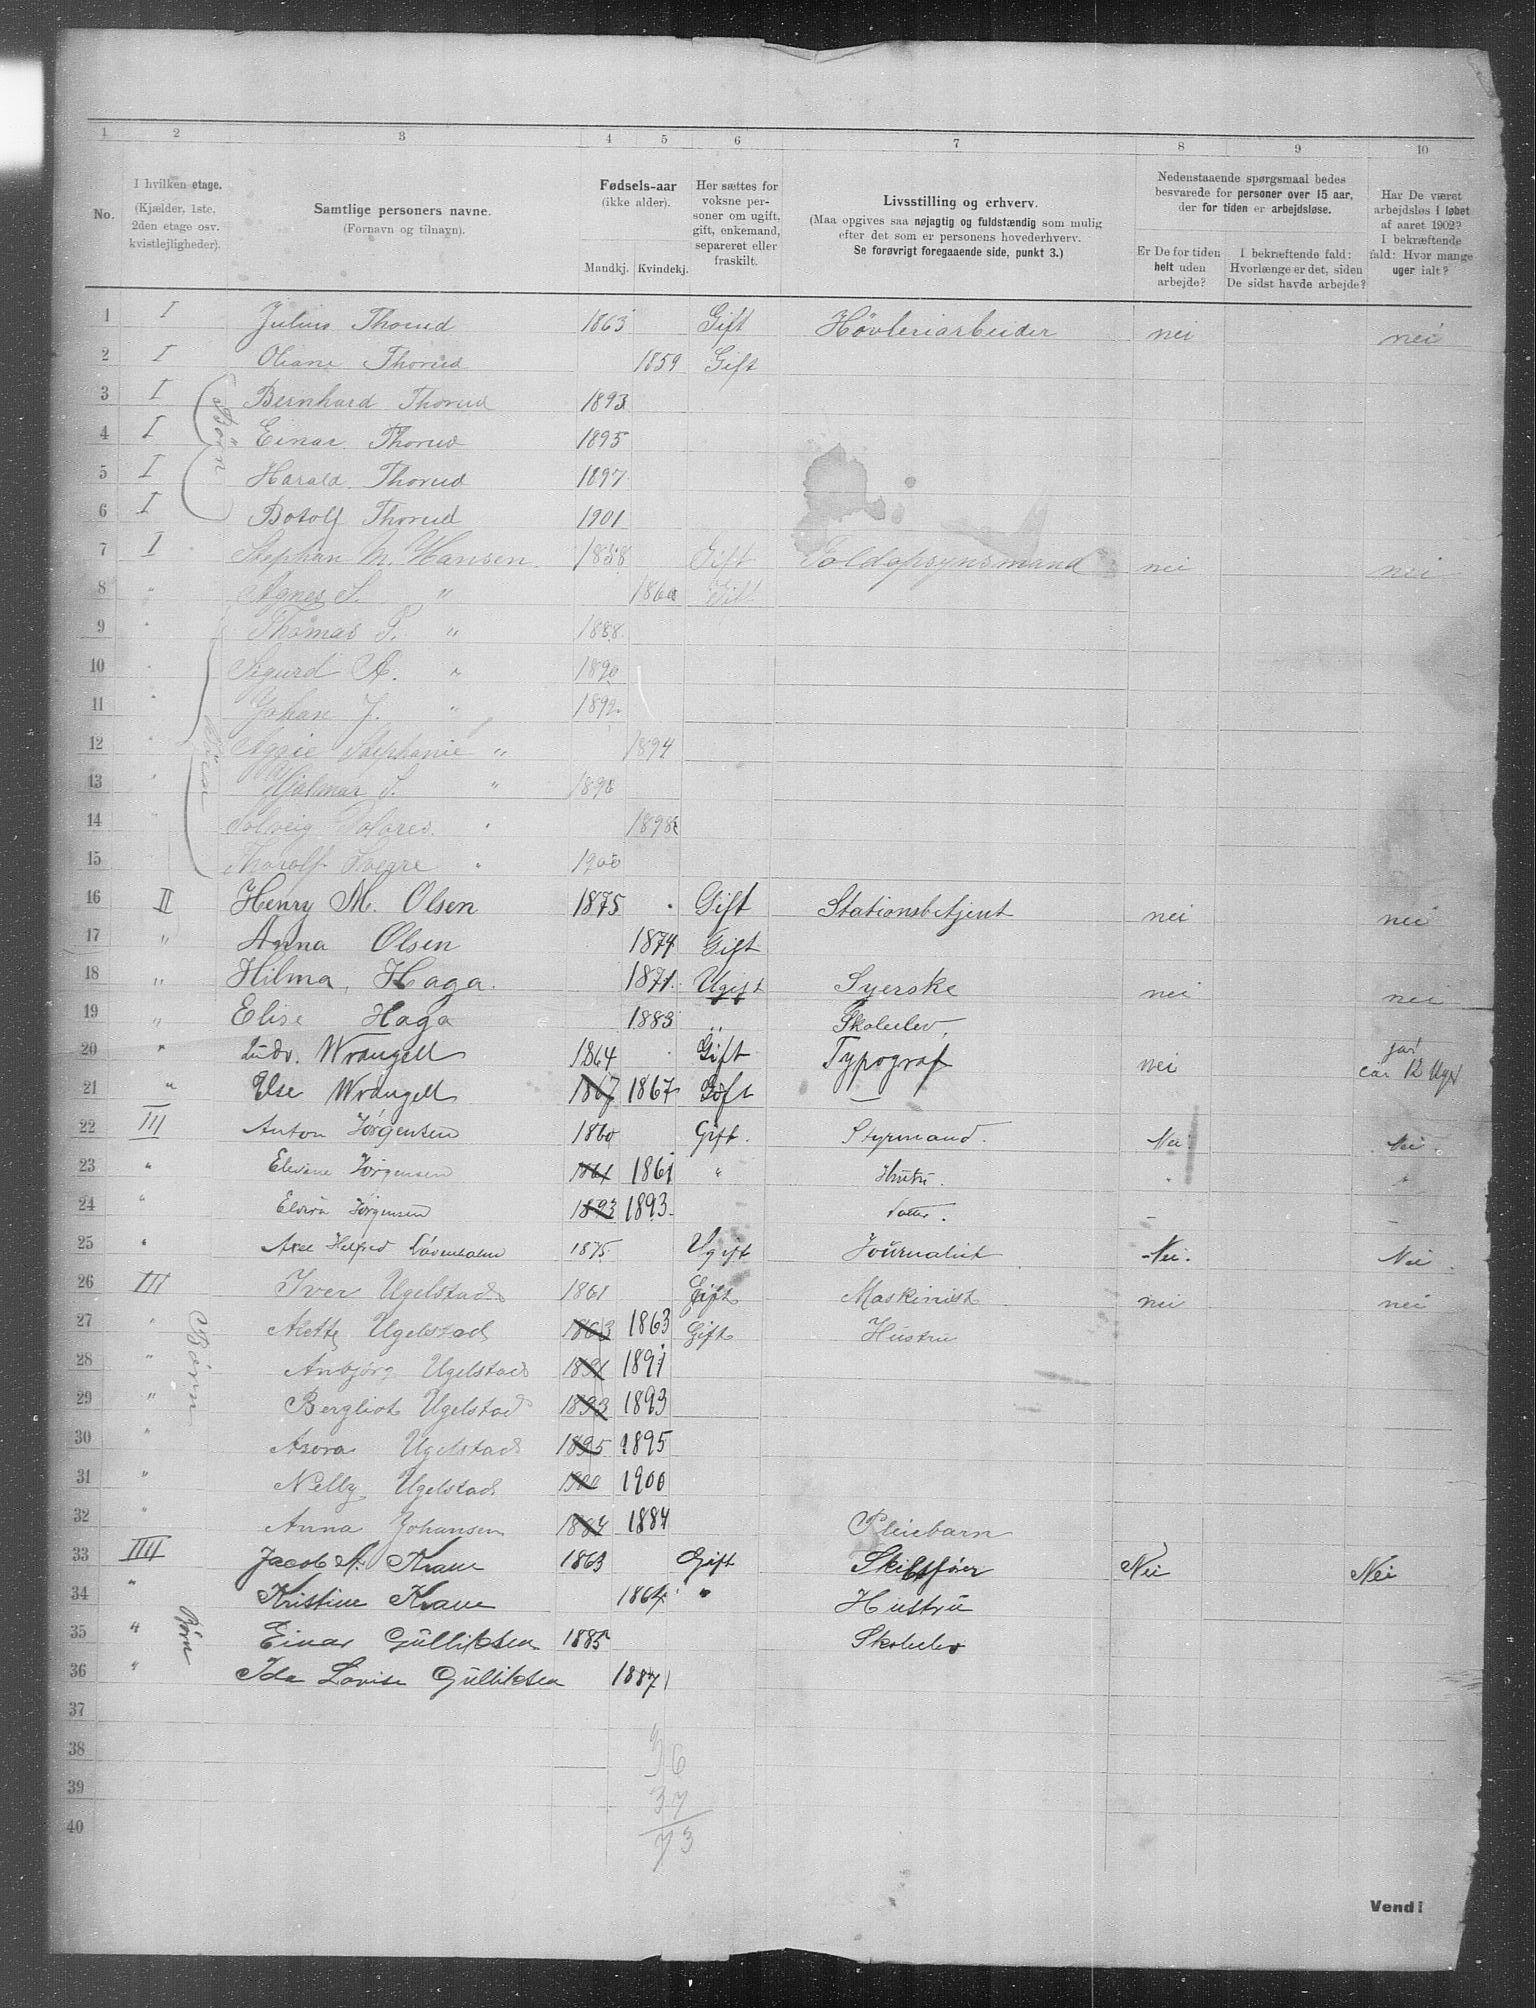 1 2 3 4 5 6 7 8 9 10
No.
I hvilken etage.
(Kjælder, 1ste, 2den etage osv. kvistlejligheder).
Samtlige personers navne.
(Fornavn og tilnavn).
Fødsels-aar
(ikke alder).
Mandkj. Kvindekj.
Her sættes for voksne personer om ugift, gift, enkemand, separeret eller fraskilt.
Livsstilling og erhverv.
(Maa opgives saa nøjagtig og fuldstændig som mulig efter det som er personens hovederhverv.
Se forøvrigt foregaaende side, punkt 3.)
Nedenstaaende spørgsmaal bedes besvarede for personer over 15 aar, der for tiden er arbejdsløse.
Er De for tiden helt uden arbejde?
I bekræftende fald: Hvorlænge er det, siden De sidst havde arbejde?
Har De været arbejdsløs i løbet af aaret 1902? I bekræftende fald: Hvor mange uger ialt?
1 I Julius Thorud 1863 Gift Høvleriarbeider nei nei
2 I Oliane Thorud 1859 Gift
3 I Børn Bernhard Thorud 1893
4 I Einar Thorud 1895
5 I Harald Thorud 1897
6 I Botolf Thorud 1901
7 I Stephan M. Hansen 1858 Gift Toldopsynsmand nei nei
8 " Agnes S. " 1860 Gift
9 " Thomas P. " 1888
10 " Sigurd A. " 1890
11 " Johan J. " 1892
12 " Aagie Stephanie " 1894
13 " Hjalmar S. " 1896
14 " Solveig Dolores " 1898
15 " Thorolf Sverre " 1900
16 II Henry M. Olsen 1875 Gift Stationsbetjent nei nei
17 " Anna Olsen 1874 Gift
18 " Hilma Haga 1871 Ugift Syerske nei nei
19 " Elise Haga 1883 " Skoleelev.
20 " Ludv. Wrangell 1864 Gift Typograf nei ja! ca 12 Uger
21 " Else Wrangell 1867 1867 Gift
22 III Anton Jørgensen 1860 Gift. Styrmand. Nei Nei.
23 " Elevine Jørgensen 1861 1861 " Hustru. " "
24 " Elvira Jørgensen 1893 1893 Datter. – –
25 " Axel Helfred 1875 Ugift Journalist Nei. Nei.
26 III Iver Ugelstad 1861 Gift Maskinist nei nei
27 " Alette Ugelstad 1863 1863 Gift Hustru
28 " Børn Anbjørg Ugelstad 1891 1891
29 " Bergliot Ugelstad 1893 1893
30 " Asora Ugelstad 1895 1895
31 " Nelly Ugelstad 1900 1900
32 " Anna Johansen 1884 1884 Pleiebarn
33 IIII Jacob A. Krane 1863 Gift Skibsfører Nei Nei
34 " Kristine Krane 1864 " Hustru
35 " Børn Einar Gulliksen 1885 Skoleelev
36 " Ida Lovise Gulliksen 1887
37
38
39
40
36
37
73
Vend!